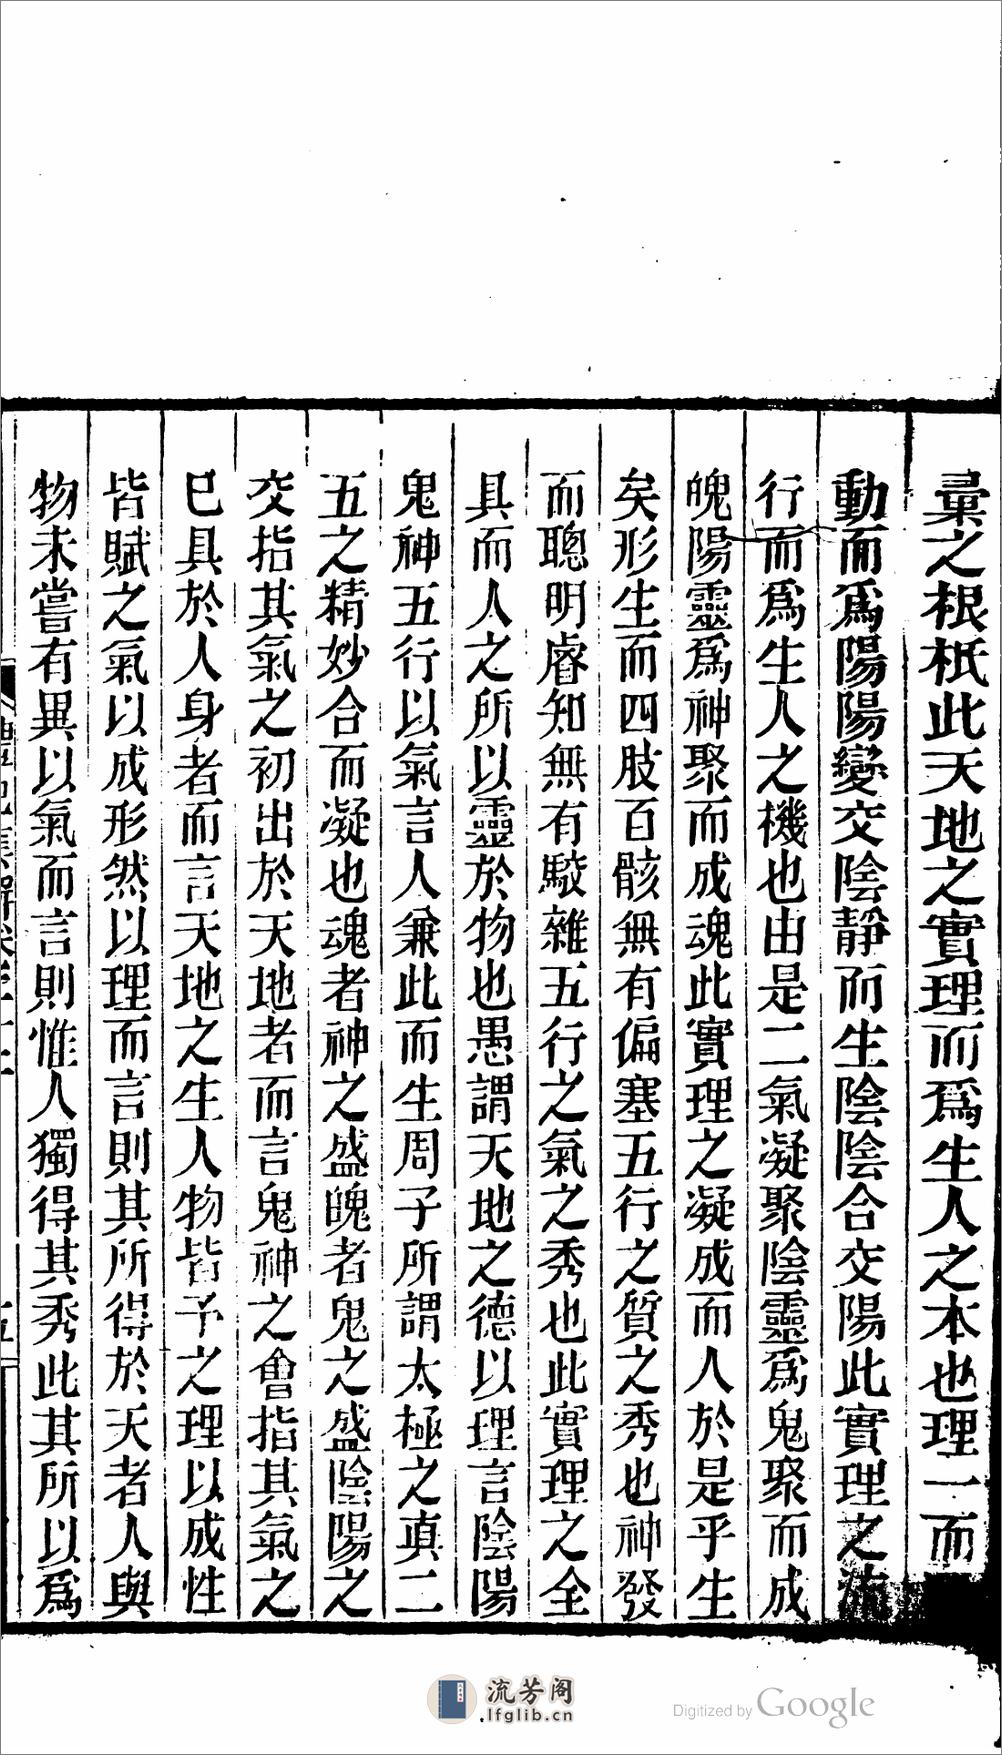 彙之根柢此天地之實理而爲生人之本也理一而
動而爲陽陽變交陰靜而生陰陰合交陽此實理之流
行而爲生人之機也由是二氣凝聚陰靈爲鬼聚而成
魄陽靈爲神聚而成魂此實理之凝成而人於是乎生
矣形生而四肢百骸無有偏塞五行之質之秀也神發
而聰明睿知無有駁雜五行之氣之秀也此實理之全
具而人之所以靈於物也愚謂天地之德以理言陰陽
鬼神五行以氣言人兼此而生周子所謂太極之真二
五之精妙合而凝也魂者神之盛魄者鬼之盛陰陽之
交指其氣之初出於天地者而言鬼神之會指其氣之
已具於人身者而言天地之生人物皆予之理以成性
皆賦之氣以成形然以理而言則其所得於天者人與
物未嘗有異以氣而言則惟人獨得其秀此其所以爲
流芳阁
lfglib.cn
Digitized by Google